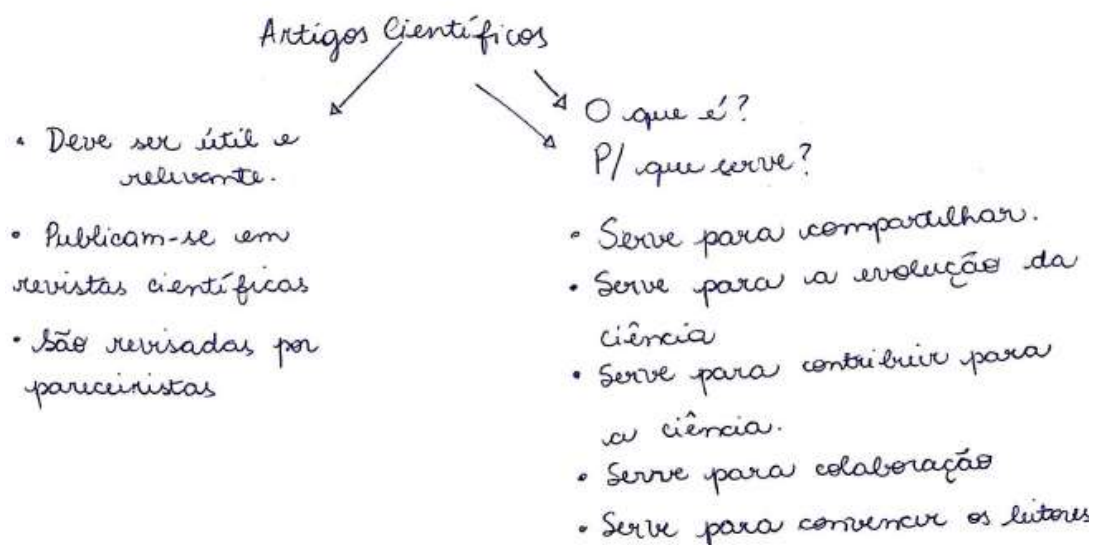 Artigos Científicos
• Deve ser útil e
relevante.
• Publicam-se em
revistas científicas
• São revisadas por
pareceiristas
O que é?
P/ que serve?
• Serve para compartilhar.
• Serve para a evolução da
ciência
• Serve para contribuir para
a ciência.
• Serve para colaboração
• Serve para convencer os leitores